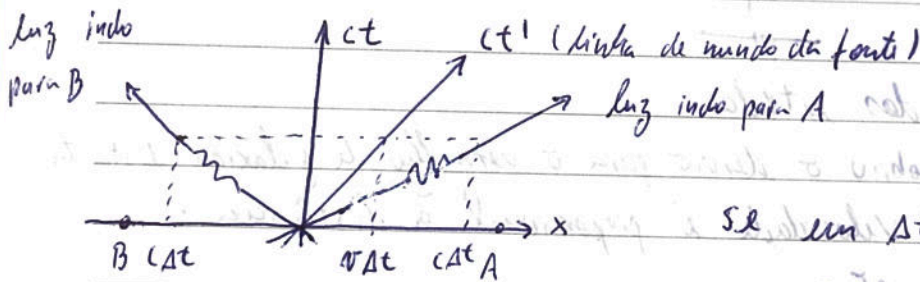 luz indo
para B
ct
ct' (linha de mundo da fonte)
luz indo para A
x
se em Δt
B cΔt
vΔt
cΔt A